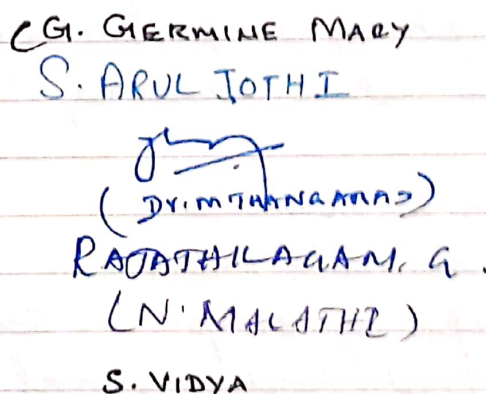 (G. GERMINE MARY
S. ARUL JOTHI
(Dr. M THANGARAJ)
RAJATHILAGAM. G.
(N. MALATHI)
S. VIDYA